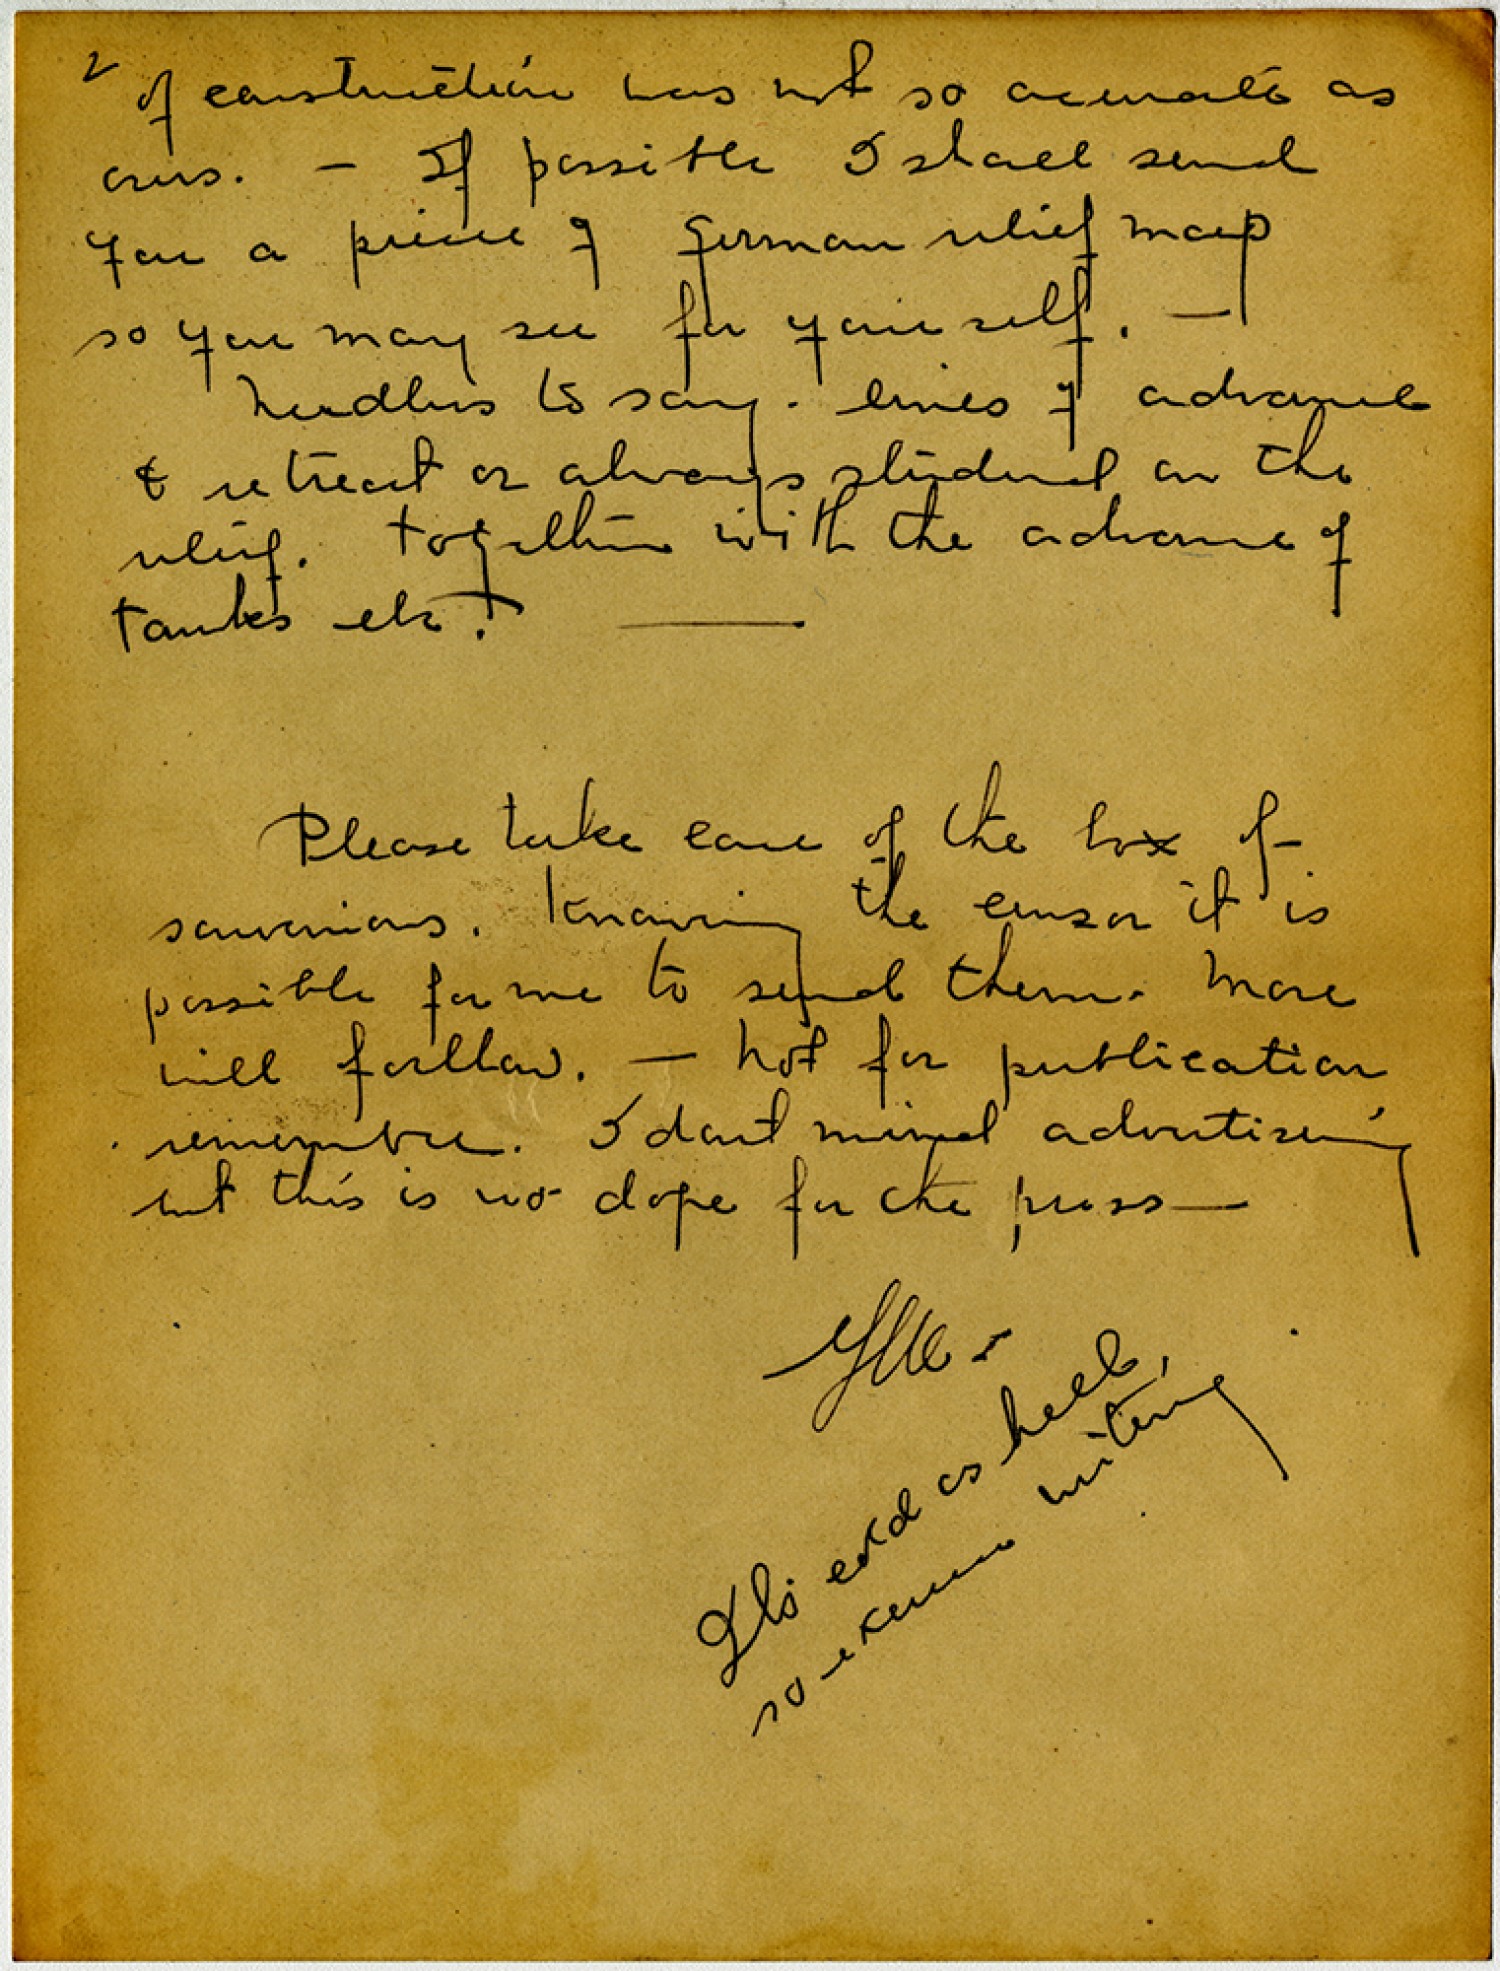 2
of construction was not so accurate as
ours. — If possible I shall send
you a piece of German relief map
so you may see for yourself. —
Needless to say. lines of advance
& retreat or always studied on the
relief. together with the advance of
tanks etc.
Please take care of the box of
souvenirs. Knowing the censor it is
possible for me to send them. More
will follow. — Not for publication
remember. I dont mind advertising
but this is no dope for the press —
Its cold as hell,
so excuse writing